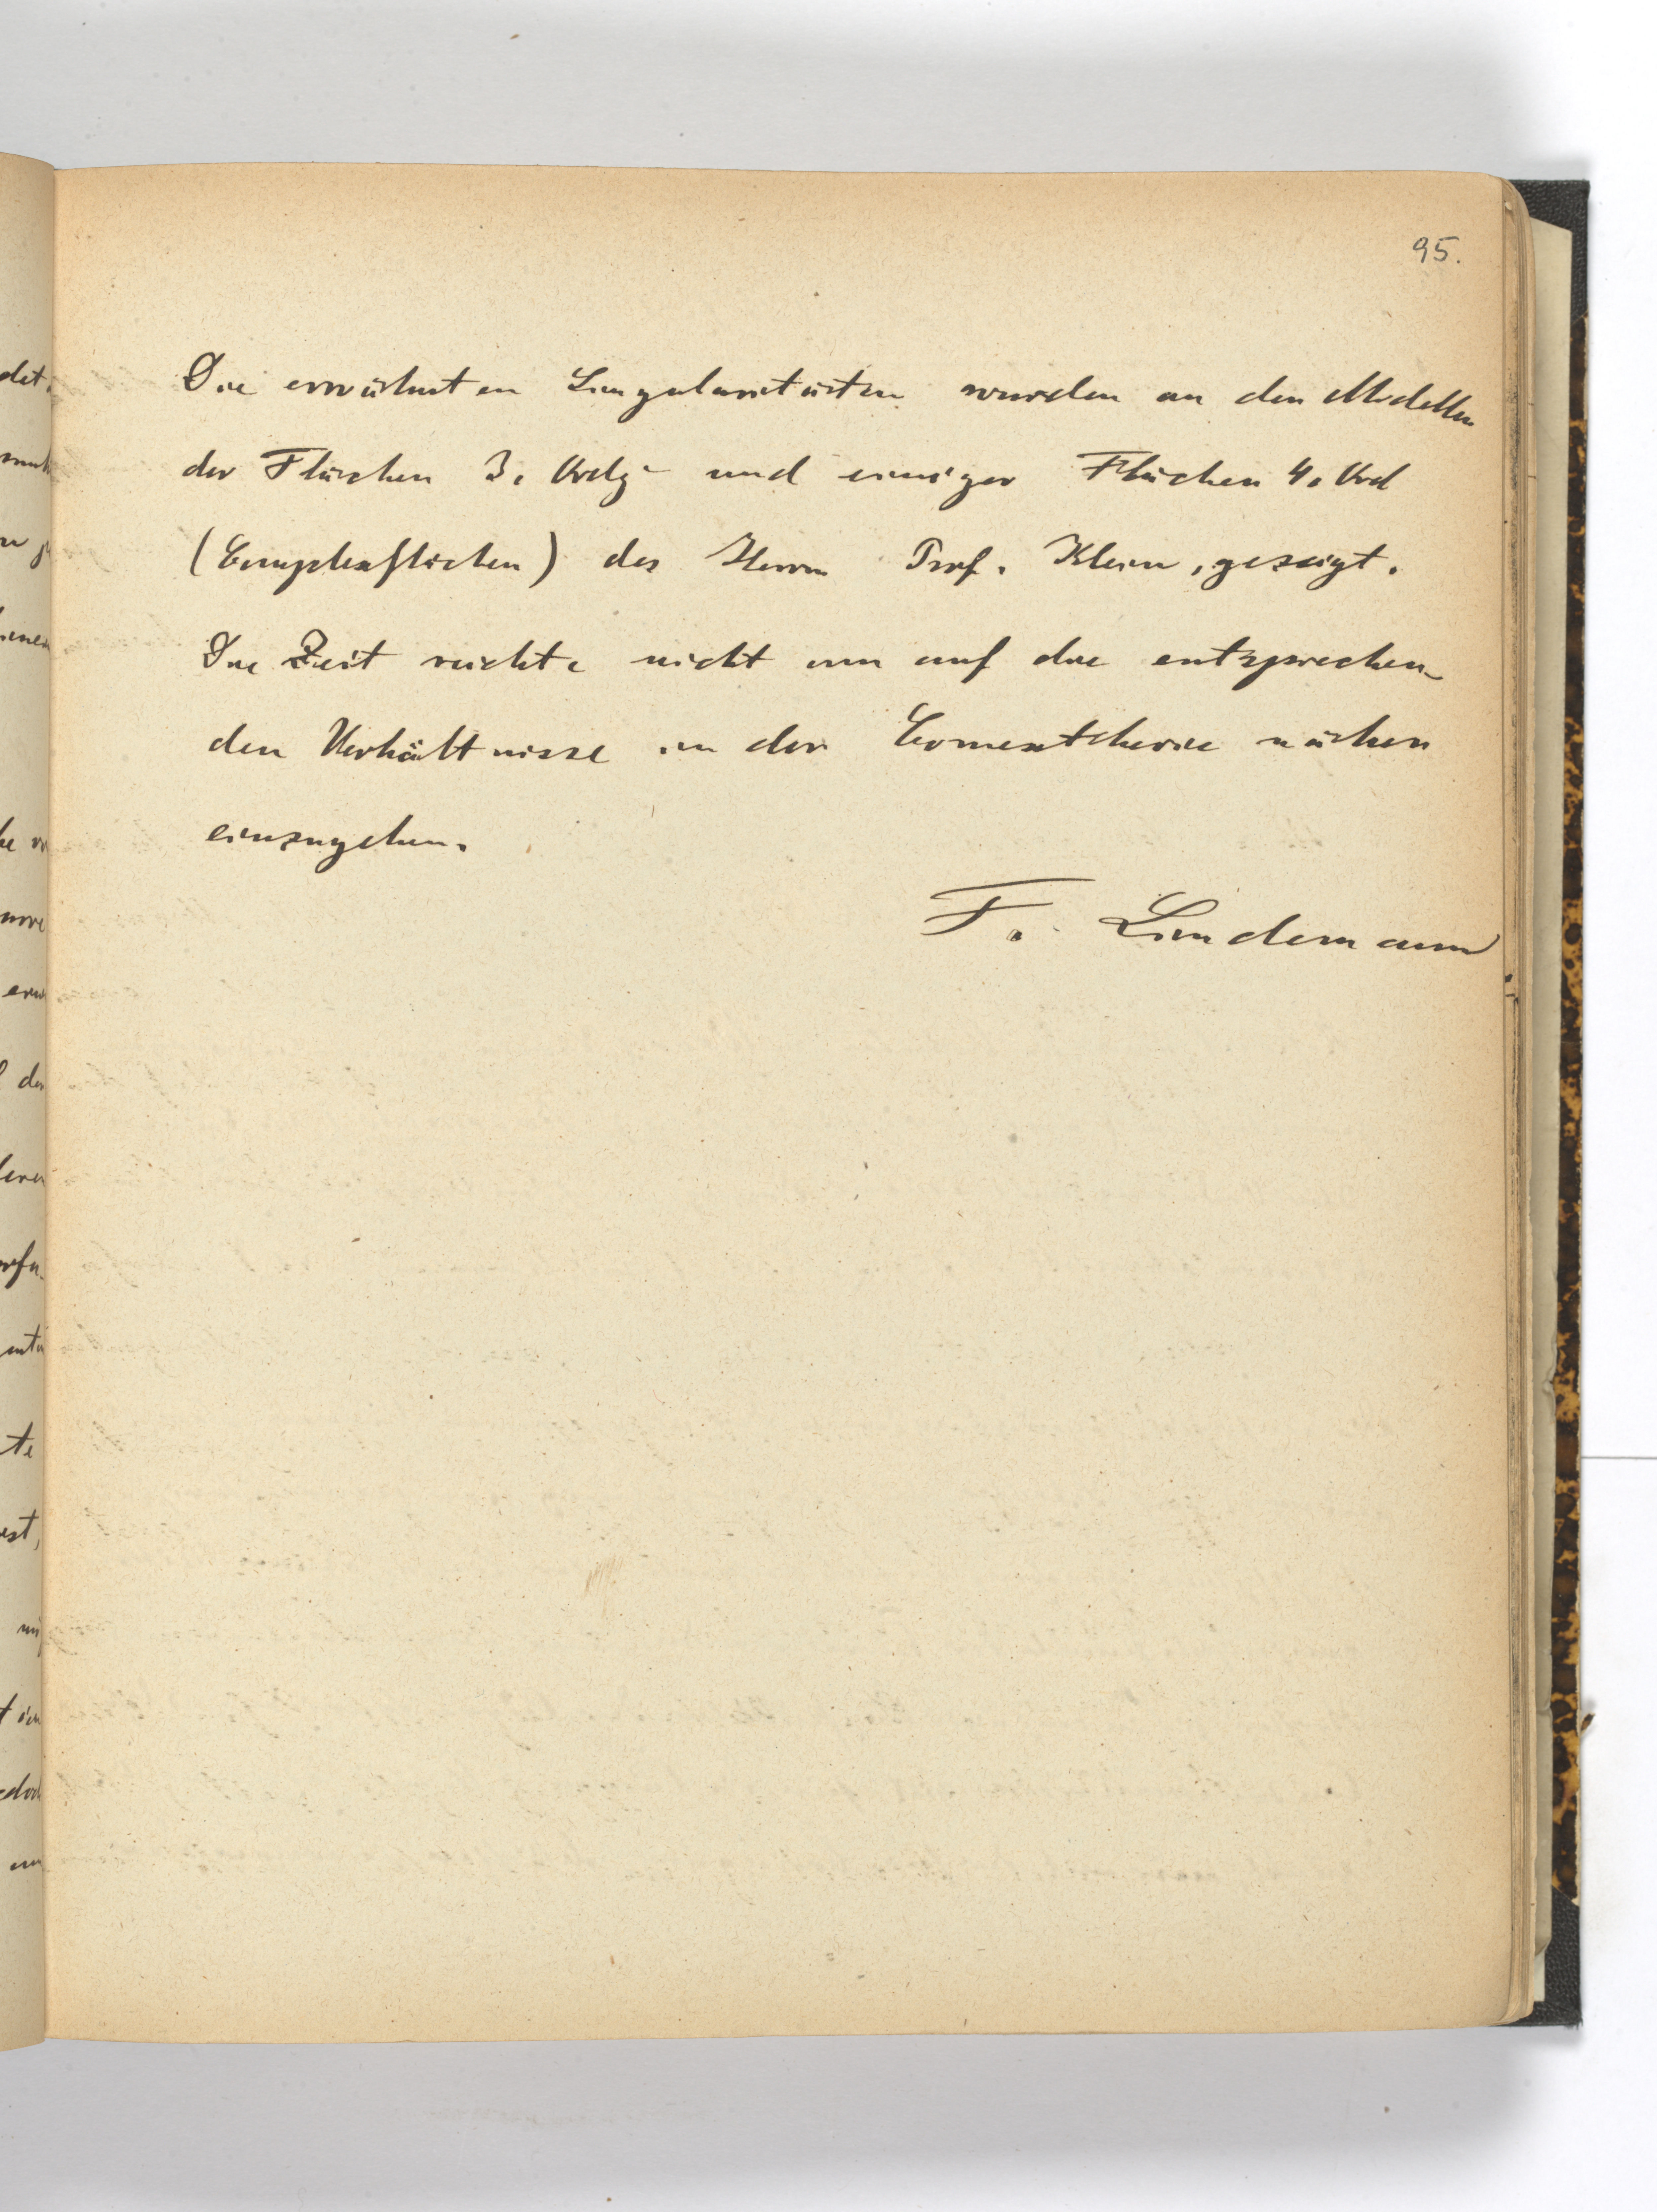 95.
Die erwähnten Singularitäten wurden an den Modellen
der Flächen 3. Ordg und einiger Flächen 4. Ord
(Complexflächen) des Herrn Prof. Klein, gezeigt.
Die Zeit reichte nicht um auf die entsprechen-
den Verhältnisse in der Connextheorie näher
einzugehen.
F. Lindemann